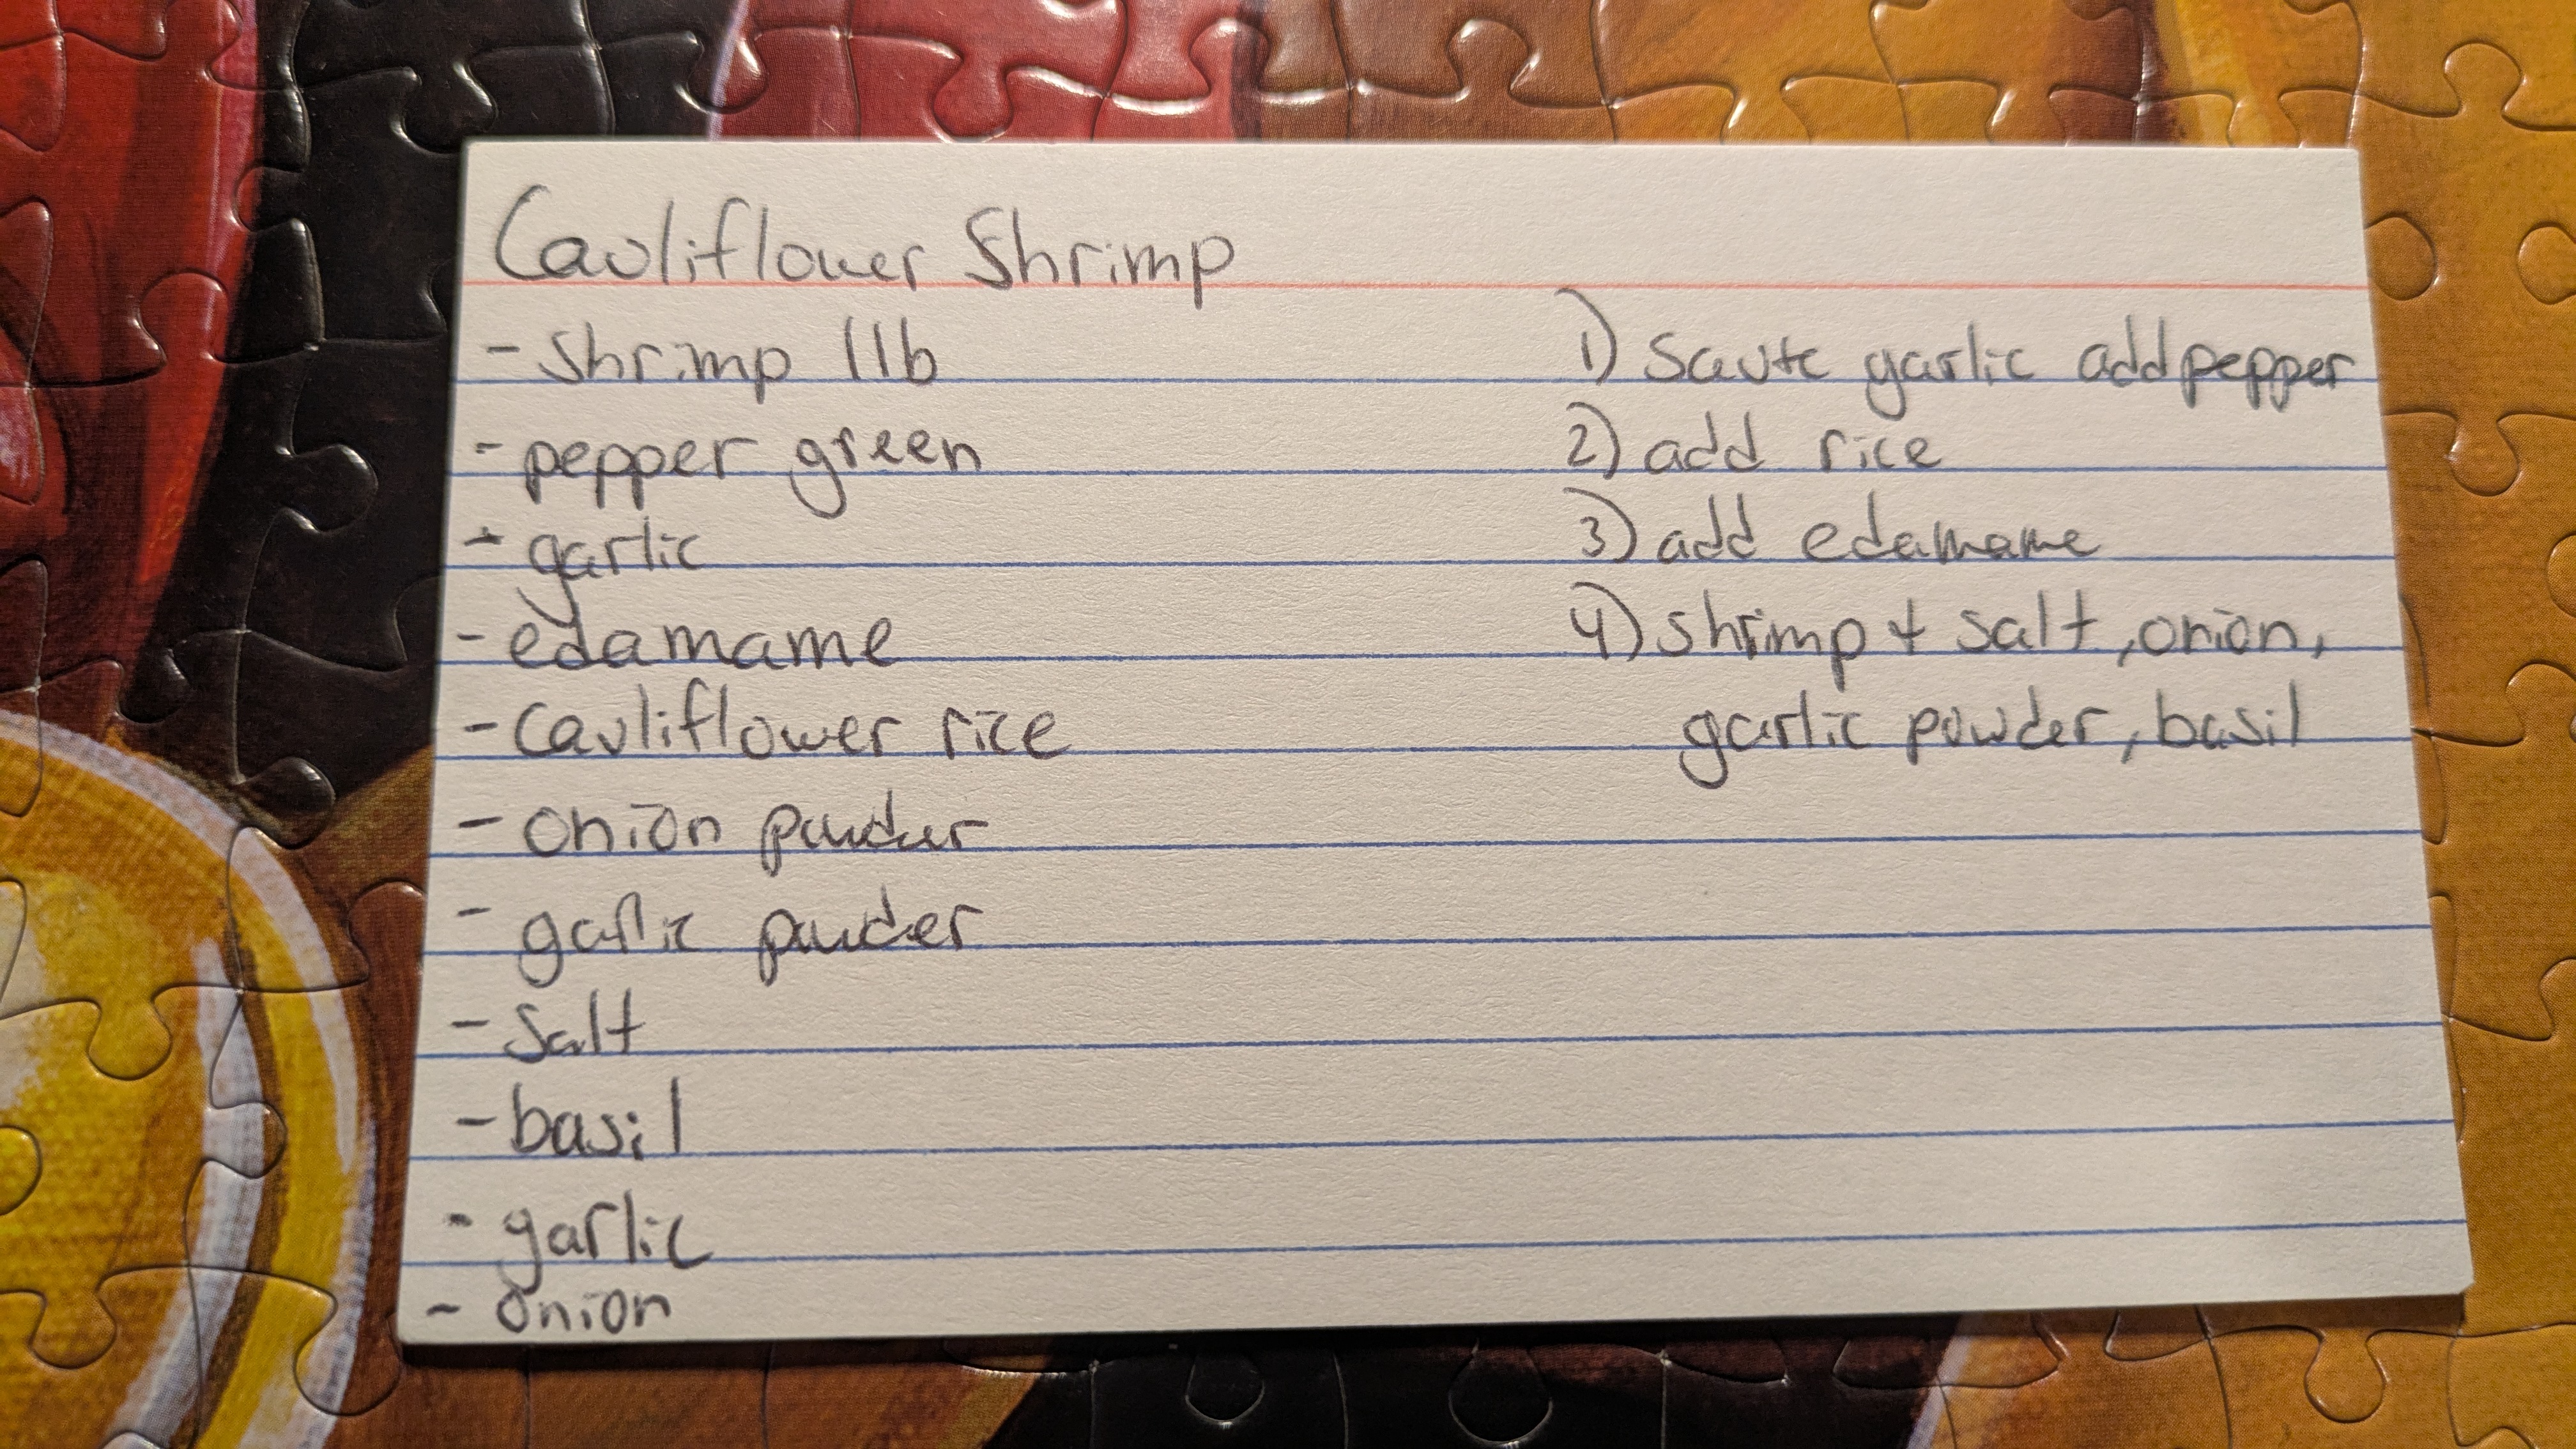 Cauliflower Shrimp
- Shrimp 1lb
- pepper green
- garlic
- edamame
- Cauliflower rice
- onion powder
- garlic powder
- Salt
- basil
- garlic
- onion
1) Saute garlic add pepper
2) add rice
3) add edamame
4) shrimp + salt, onion,
garlic powder, basil